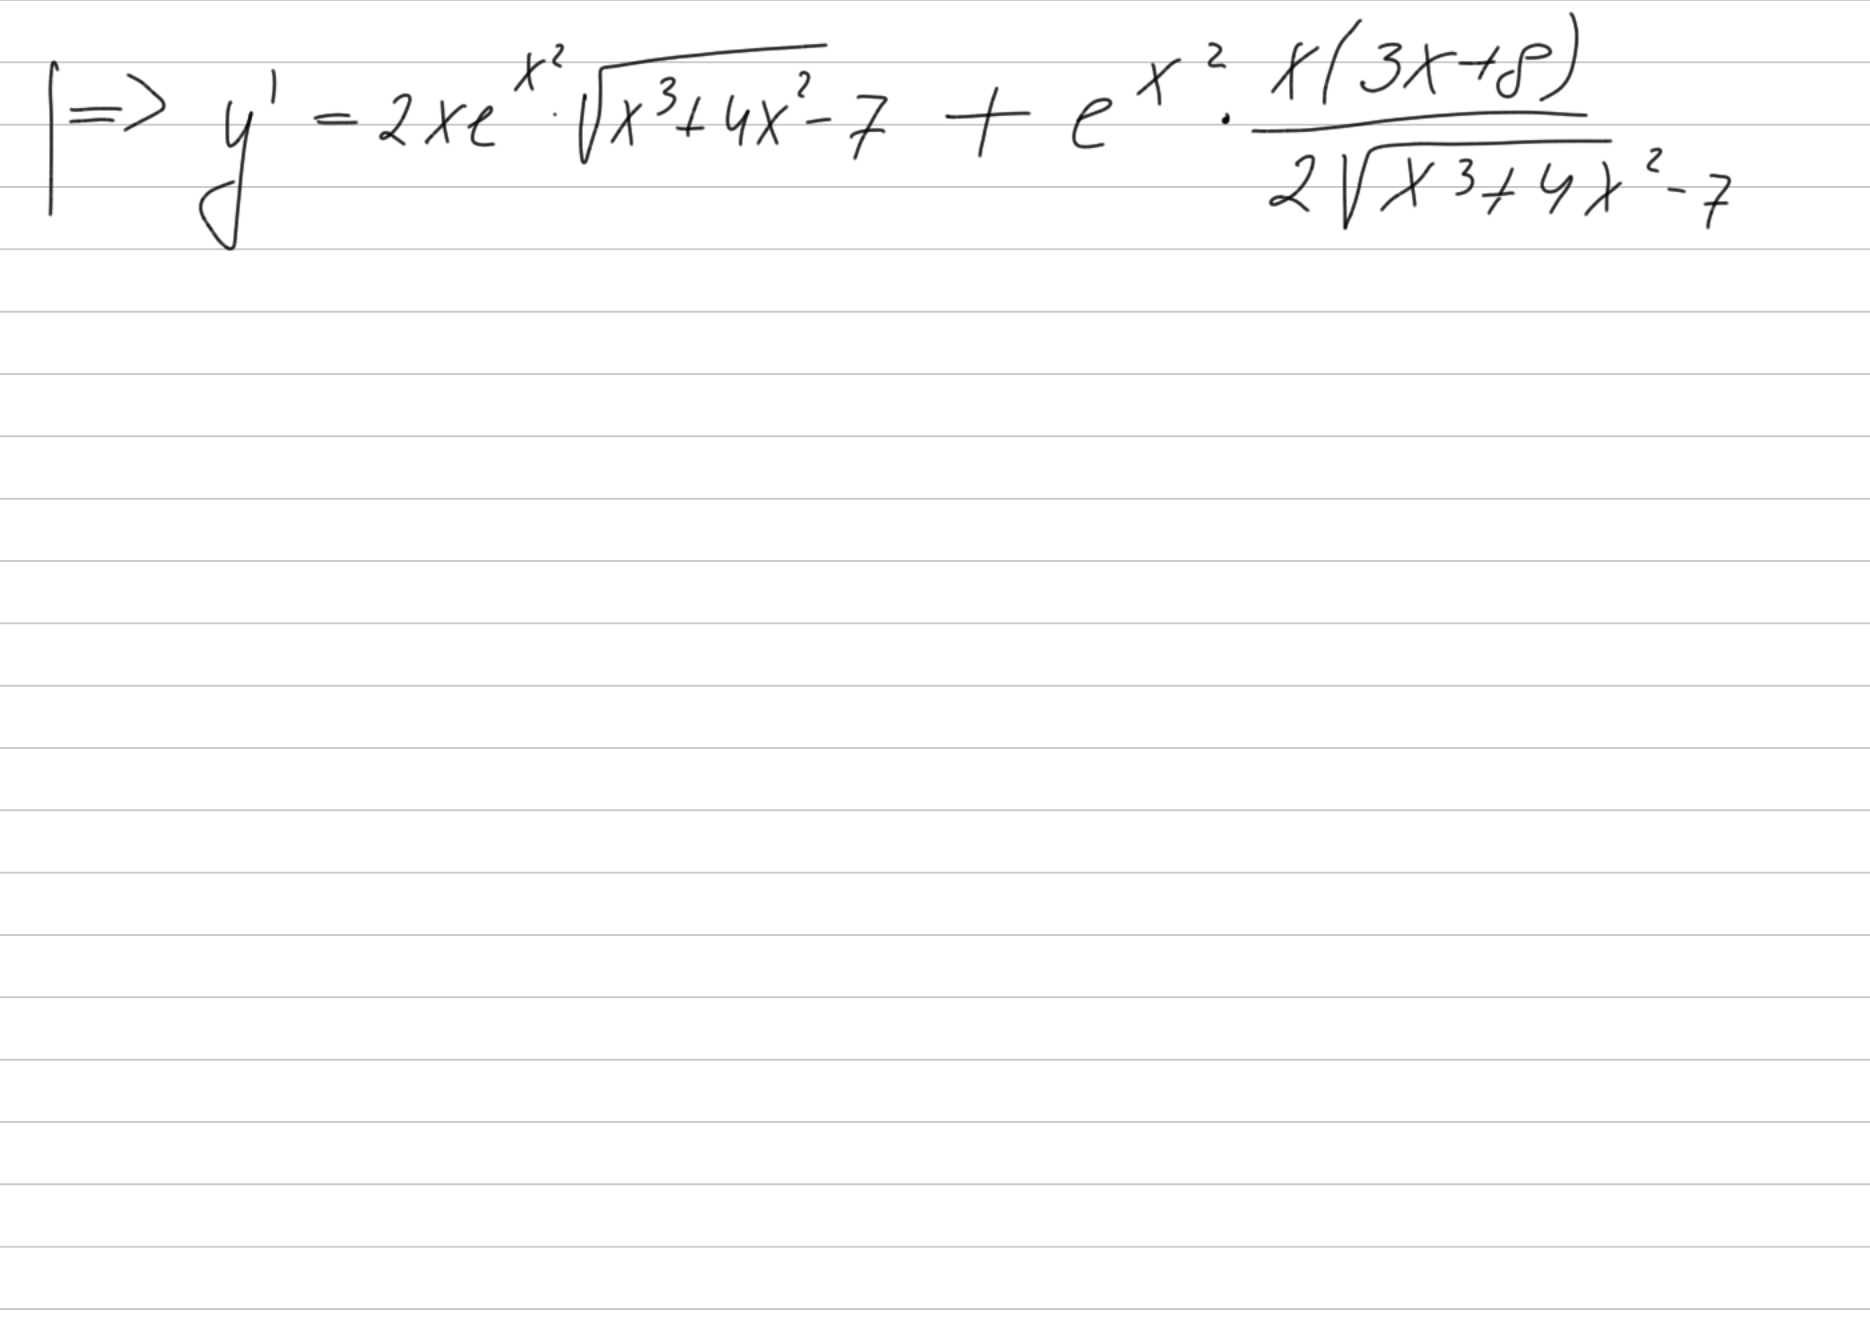 |=> y' = 2xe^{x^2} · √(x^3+4x^2-7) + e^{x^2} · x(3x+8) / 2√(x^3+4x^2-7)